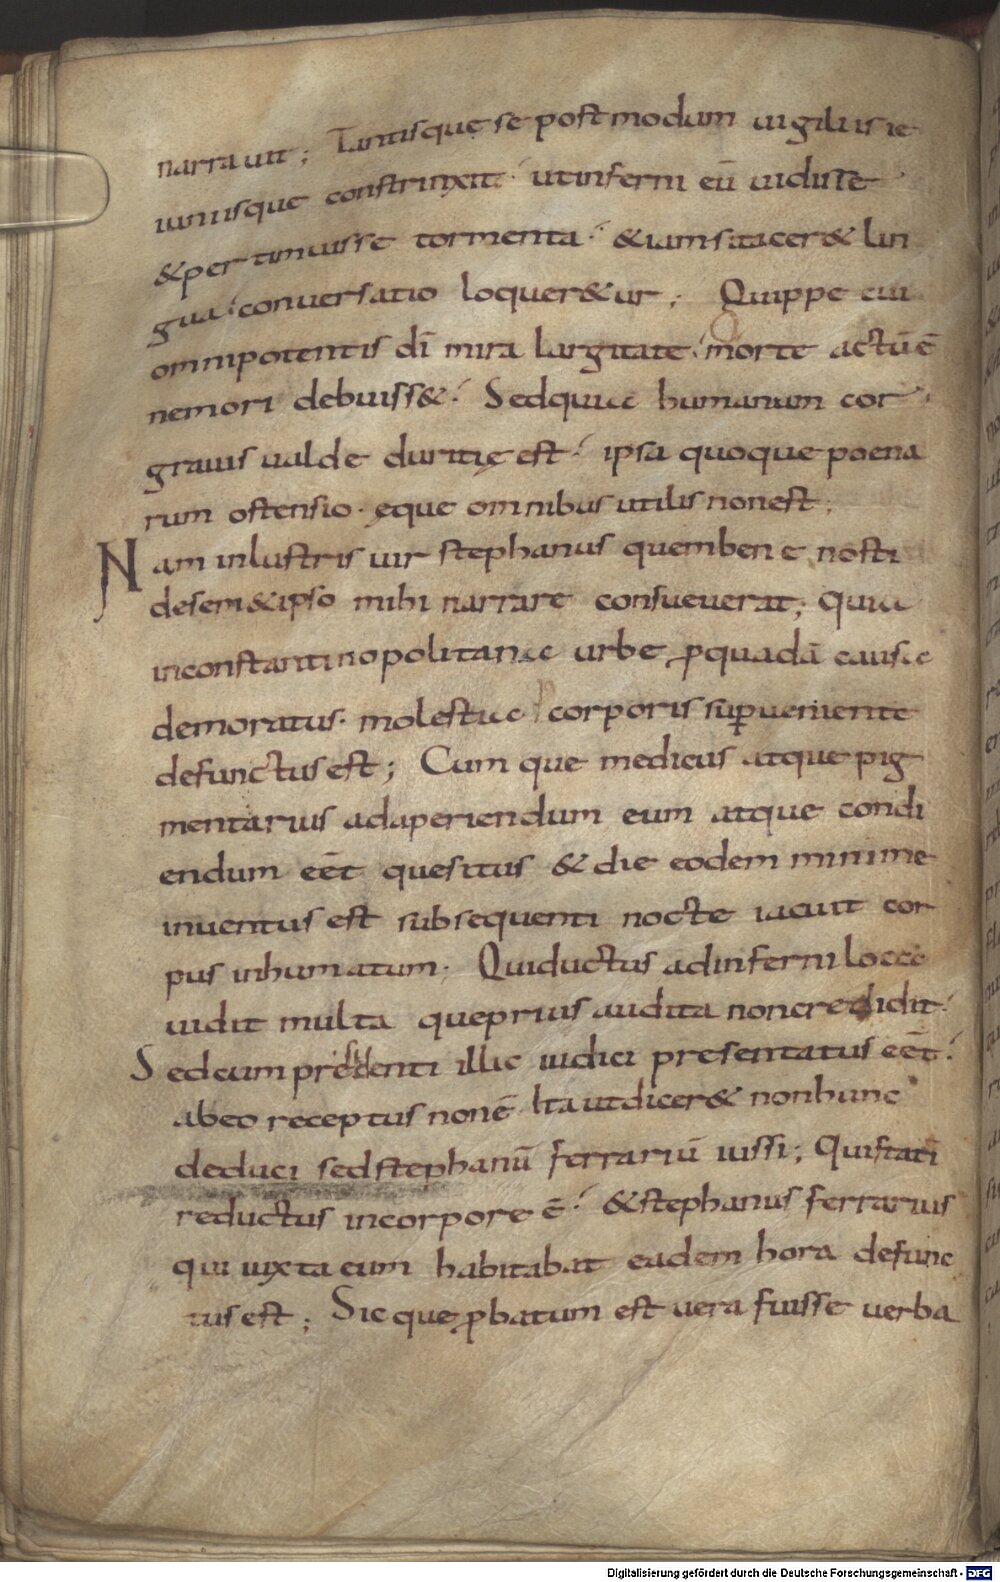 narrauit; Tantisque se postmodum uigiliis ie
iuniisque constrinxit· ut inferni eū uidisse
& pertimuisse tormenta· & iam si tacer& lin
gua· conuersatio loquer&ur; Quippe cui
omnipotentis dī mira largitate· morte actū ē
ne mori debuiss&· Sed quia humanum cor
grauis ualde duritię est· ipsa quoque poena
rum ostensio· ęque omnibus utilis non est;
Nam inlustris uir stephanus quem bene nosti
de sem&ipso mihi narrare consueuerat; Quia
in constantinopolitana urbe, p quadā causa
demoratus· molestia corporis supueniente
defunctus est; Cumque medicus atque pig
mentarius ad aperiendum eum atque condi
endum eēt quesitus & die eodem minime
inuentus est subsequenti nocte iacuit cor
pus inhumatum· Qui ductus ad inferni loca
uidit multa que prius audita non credidit·
Sed cum presidenti illic iudici presentatus eēt·
ab eo receptus non ē Ita ut dicer& non hunc
deduci sed stephanū ferrariū iussi; Qui statī
reductus in corpore ē· & stephanus ferrarius
qui iuxta eum habitabat eadem hora defunc
tus est; Sicque pbatum est uera fuisse uerba
Digitalisierung gefördert durch die Deutsche Forschungsgemeinschaft - DFG